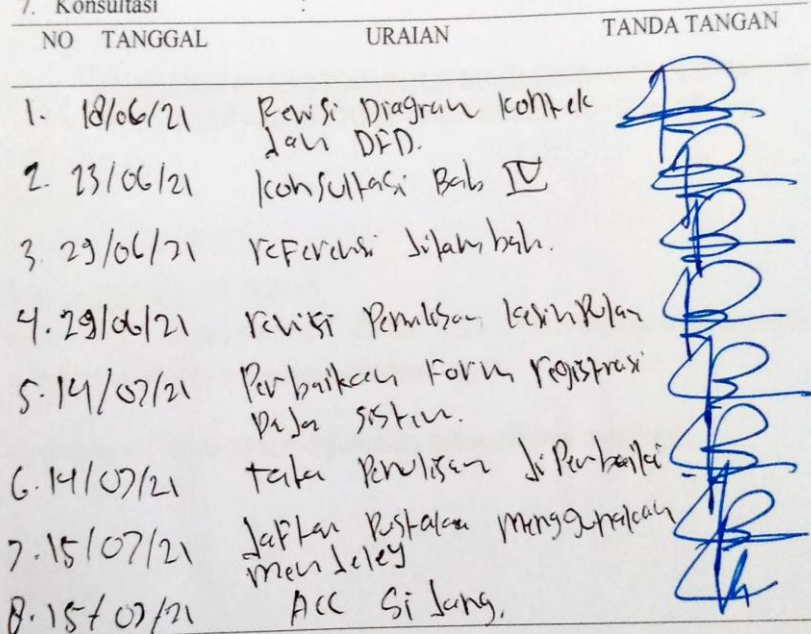 7. Konsultasi :
NO TANGGAL URAIAN TANDA TANGAN
1. 18/06/21 Revisi Diagram kontek
dan DFD.
2. 23/06/21 konsultasi Bab IV
3. 29/06/21 referensi ditambah.
4. 29/06/21 revisi Penulisan kesimpulan
5. 14/07/21 Perbaikan Form registrasi
Pada sistem.
6. 14/07/21 tata Penulisan diPerbaiki
7. 15/07/21 daftar Pustaka menggunakan
mendeley
8. 15/07/21 ACC Sidang.